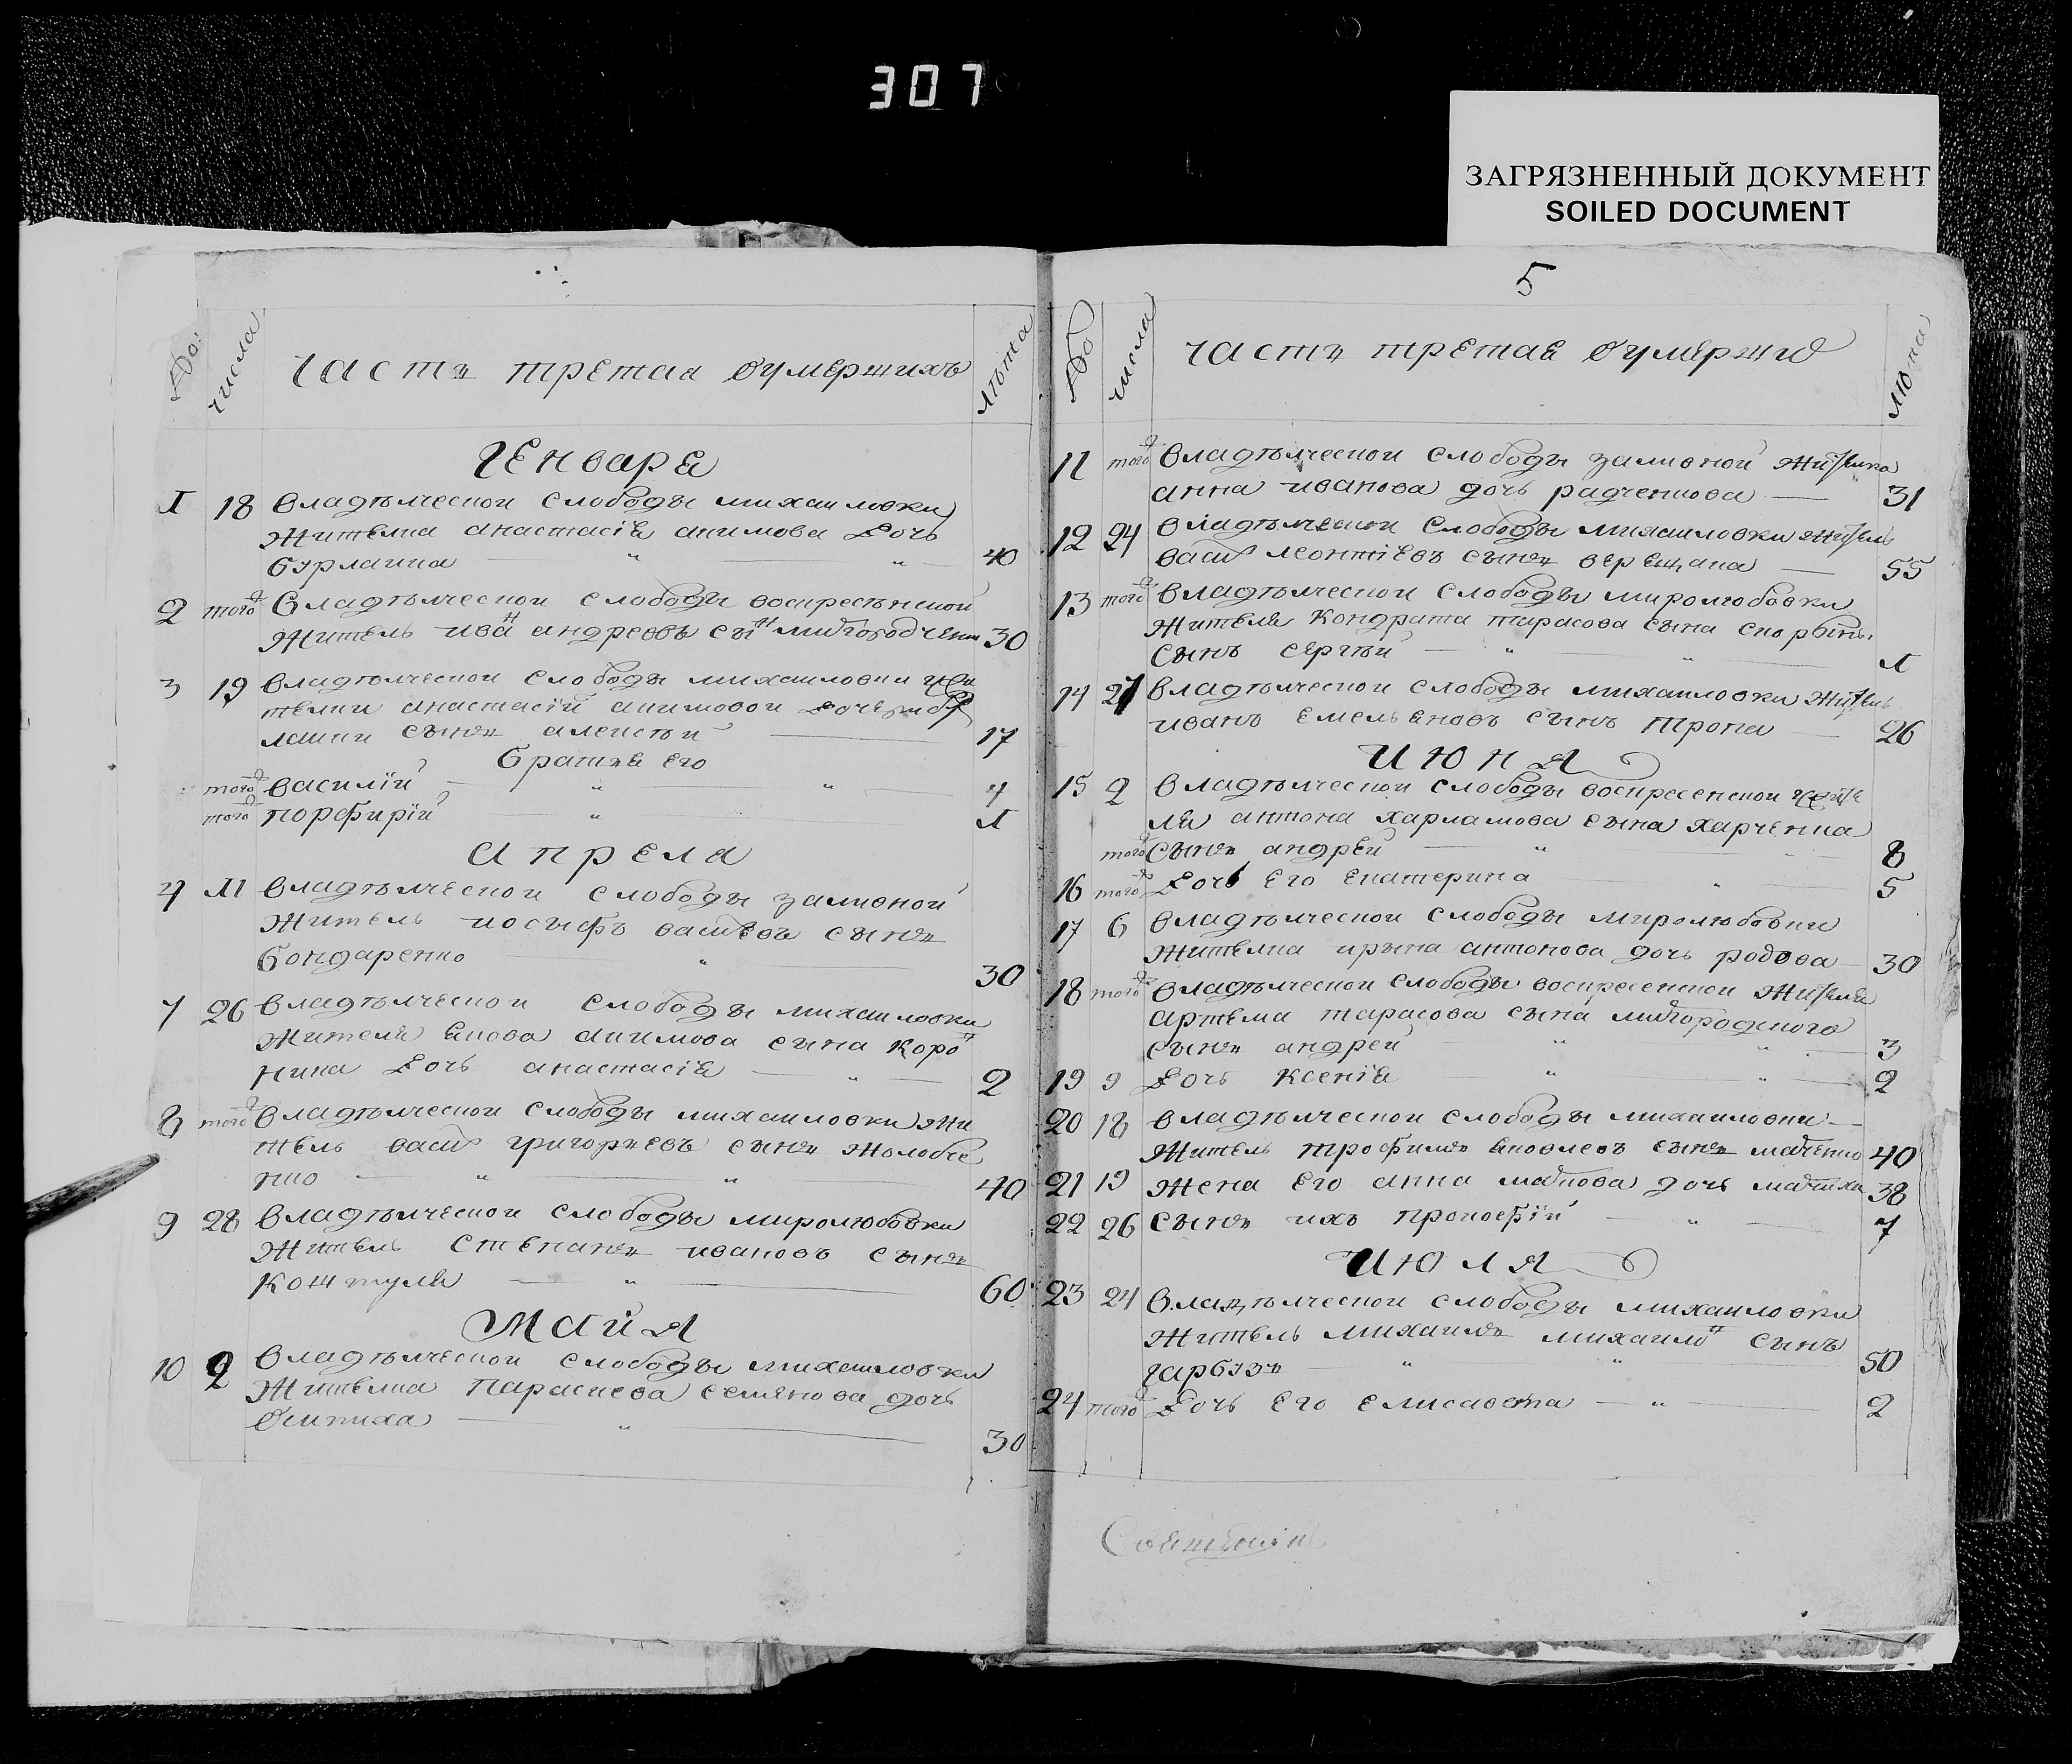 307
ЗАГРЯЗНЕННЫЙ ДОКУМЕНТ
SOILED DOCUMENT
числа
часть третая оумершихъ
лѣта
Генваря
1 18 владѣлческой слободы михаиловки
жителка анастасія акимова дочь
бурлачка 40
2 того владѣлческой слободы воскресѣнской
житель иван андреевъ сын миргородченк 30
3 19 владѣлческой слободы михаиловки жи
телки анастасій акимовой дочер
сынъ алексѣй 17
братья его
того василій 4
того порфирій 1
апреля
4 11 владѣлческой слободы заливной
житель иосыфъ васілевъ сынъ
бондаренко 30
7 26 владѣлческой слободы михаиловки
жителя якова акимова сына коро
дочь анастасія 2
8 того владѣлческой слободы михаиловки жи
тель васил григорьевъ сынъ жолобе
нко 40
9 28 владѣлческой слободы миролюбовки
житель стѣпанъ ивановъ сынъ
коштуля 60
Майя
10 2 владѣлческой слободы михаиловки
жителка параскева семѣнова дочь
30
5
числа
часть третая оумерши
лѣта
11 того владѣлческой слободы заливной жителка
анна иванова дочь радченкова 31
12 24 владѣлческой слободы михаиловки житель
васил леонтіевъ сынъ верещака 55
13 того владѣлческой слободы миролюбовки
жителя кондрата тарасова сына
сынъ сергѣй 1
14 27 владѣлческой слободы михаиловки житель
иванъ емельяновъ сынъ тропа 26
ИЮНЯ
15 2 владѣлческой слободы воскресенской жите
ля антона харламова сына харченка
того сынъ андрей 8
16 того дочь его екатерина 5
17 6 владѣлческой слободы миролюбовки
жителка ирына антонова дочь родова 30
18 того владѣлческой слободы воскресенской жителя
артема тарасова сына миргородского
сынъ андрей 3
19 9 дочь ксенія 2
20 18 владѣлческой слободы михаиловки
житель трофимъ яковлевъ сынъ маченко 40
21 19 жена его анна дочь мачиха 38
22 26 сынъ ихъ прокофій 7
ИЮЛЯ
23 24 владѣлческой слободы михаиловки
житель михаилъ михаилов сынъ
гарбузъ 50
24 того дочь его елисавета 2